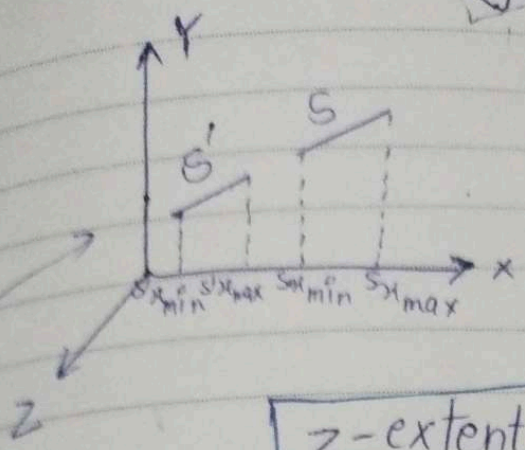 Y
S
S'
X
S'xmin S'xmax Sxmin Sxmax
Z
z-extent